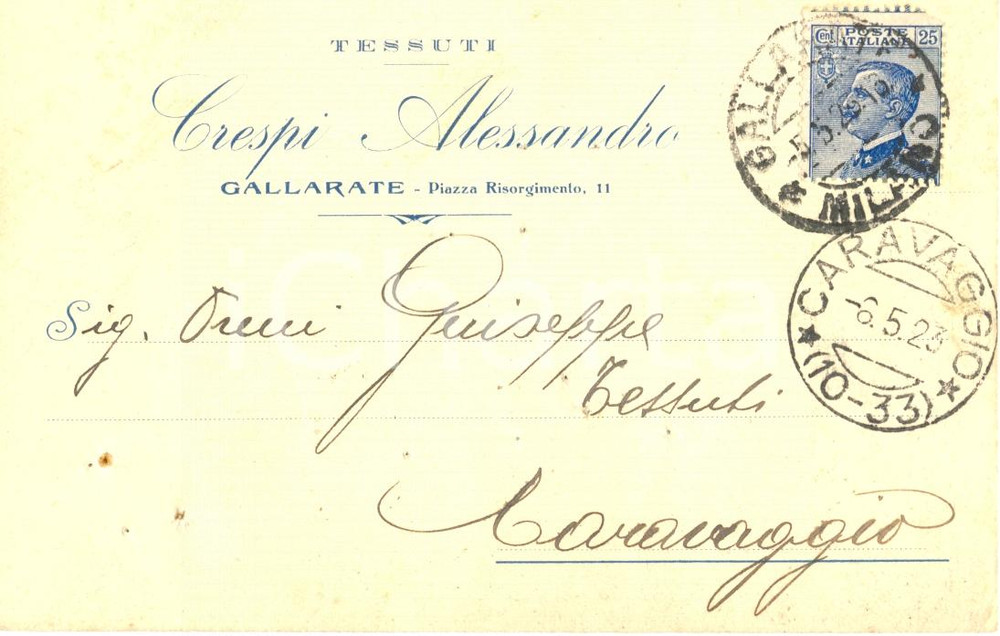 TESSUTI
Crespi Alessandro
GALLARATE - Piazza Risorgimento, 11
Cent. POSTE ITALIANE 25
GALLARATE
MILANO
CARAVAGGIO
-6.5.23
(10-33)
Sig. Giuseppe
Tessuti
Caravaggio
iCharta